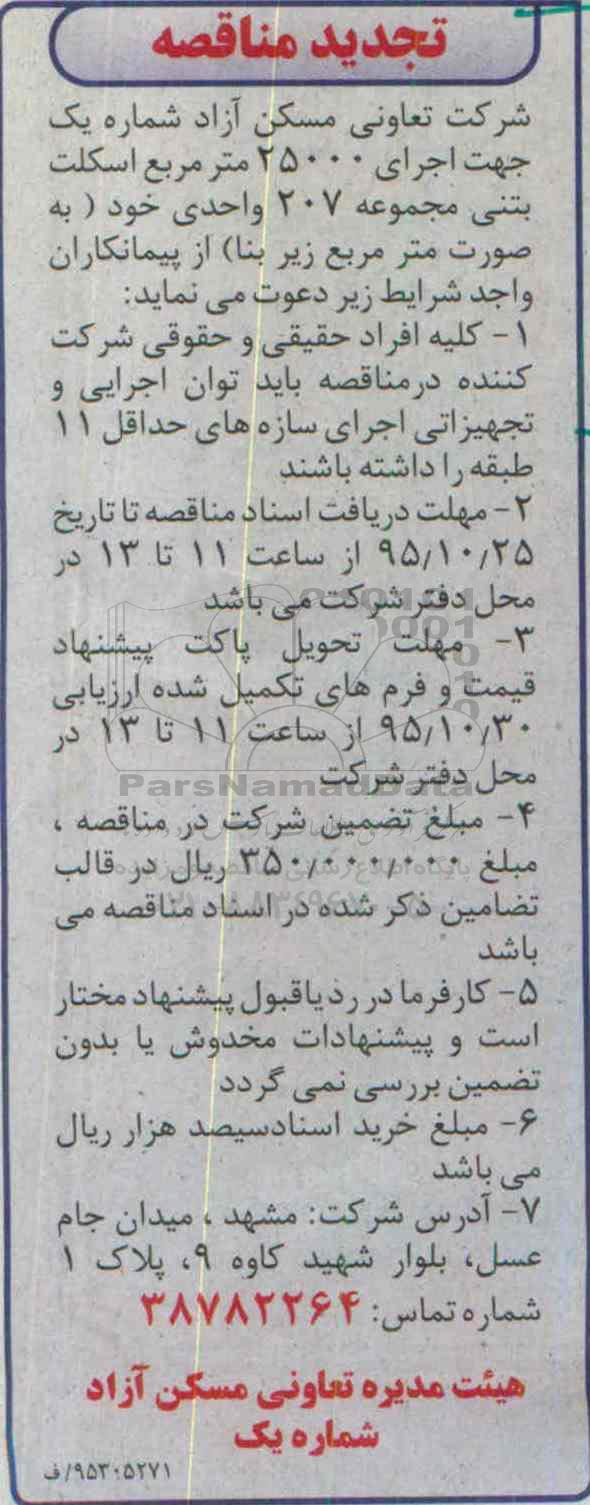 تجدید مناقصه
شرکت تعاونی مسکن آزاد شماره یک
جهت اجرای ۲۵۰۰۰ متر مربع اسکلت
بتنی مجموعه ۲۰۷ واحدی خود ( به
صورت متر مربع زیر بنا) از پیمانکاران
واجد شرایط زیر دعوت می نماید:
۱- کلیه افراد حقیقی و حقوقی شرکت
کننده درمناقصه باید توان اجرایی و
تجهیزاتی اجرای سازه های حداقل ۱۱
طبقه را داشته باشند
۲- مهلت دریافت اسناد مناقصه تا تاریخ
۹۵/۱۰/۲۵ از ساعت ۱۱ تا ۱۳ در
محل دفتر شرکت می باشد
۳- مهلت تحویل پاکت پیشنهاد
قیمت و فرم های تکمیل شده ارزیابی
۹۵/۱۰/۳۰ از ساعت ۱۱ تا ۱۳ در
محل دفتر شرکت
ParsNamadData
۴- مبلغ تضمین شرکت در مناقصه ،
مبلغ ۳۵۰/۰۰۰/۰۰۰ ریال در قالب
تضامین ذکر شده در اسناد مناقصه می
باشد
۵- کارفرما در رد یاقبول پیشنهاد مختار
است و پیشنهادات مخدوش یا بدون
تضمین بررسی نمی گردد
۶- مبلغ خرید اسنادسیصد هزار ریال
می باشد
۷- آدرس شرکت: مشهد ، میدان جام
عسل، بلوار شهید کاوه ۹، پلاک ۱
شماره تماس: ۳۸۷۸۲۲۶۴
هیئت مدیره تعاونی مسکن آزاد
شماره یک
۹۵۳۰۵۲۷۱/ف